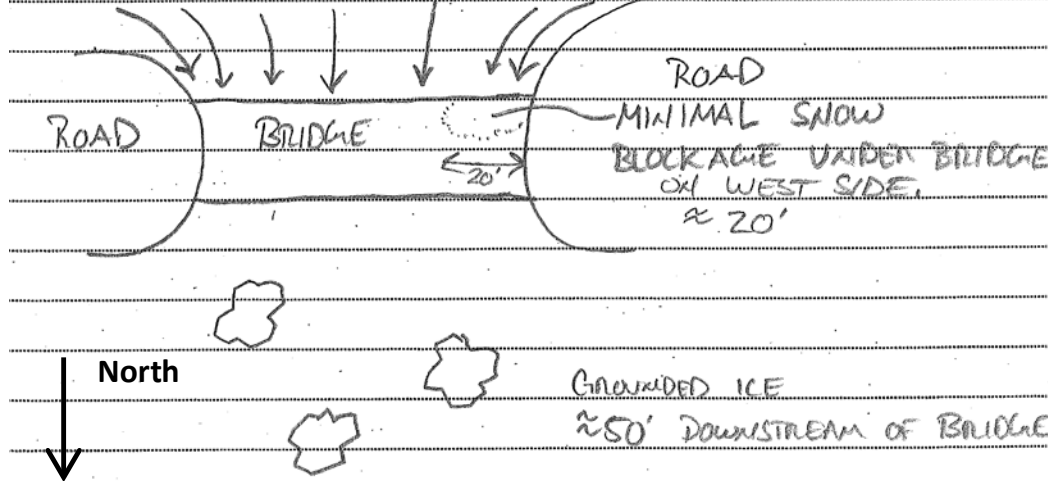 ROAD
ROAD
BRIDGE
MINIMAL SNOW
BLOCKAGE UNDER BRIDGE
ON WEST SIDE.
≈ 20'
20'
North
GROUNDED ICE
≈50' DOWNSTREAM OF BRIDGE